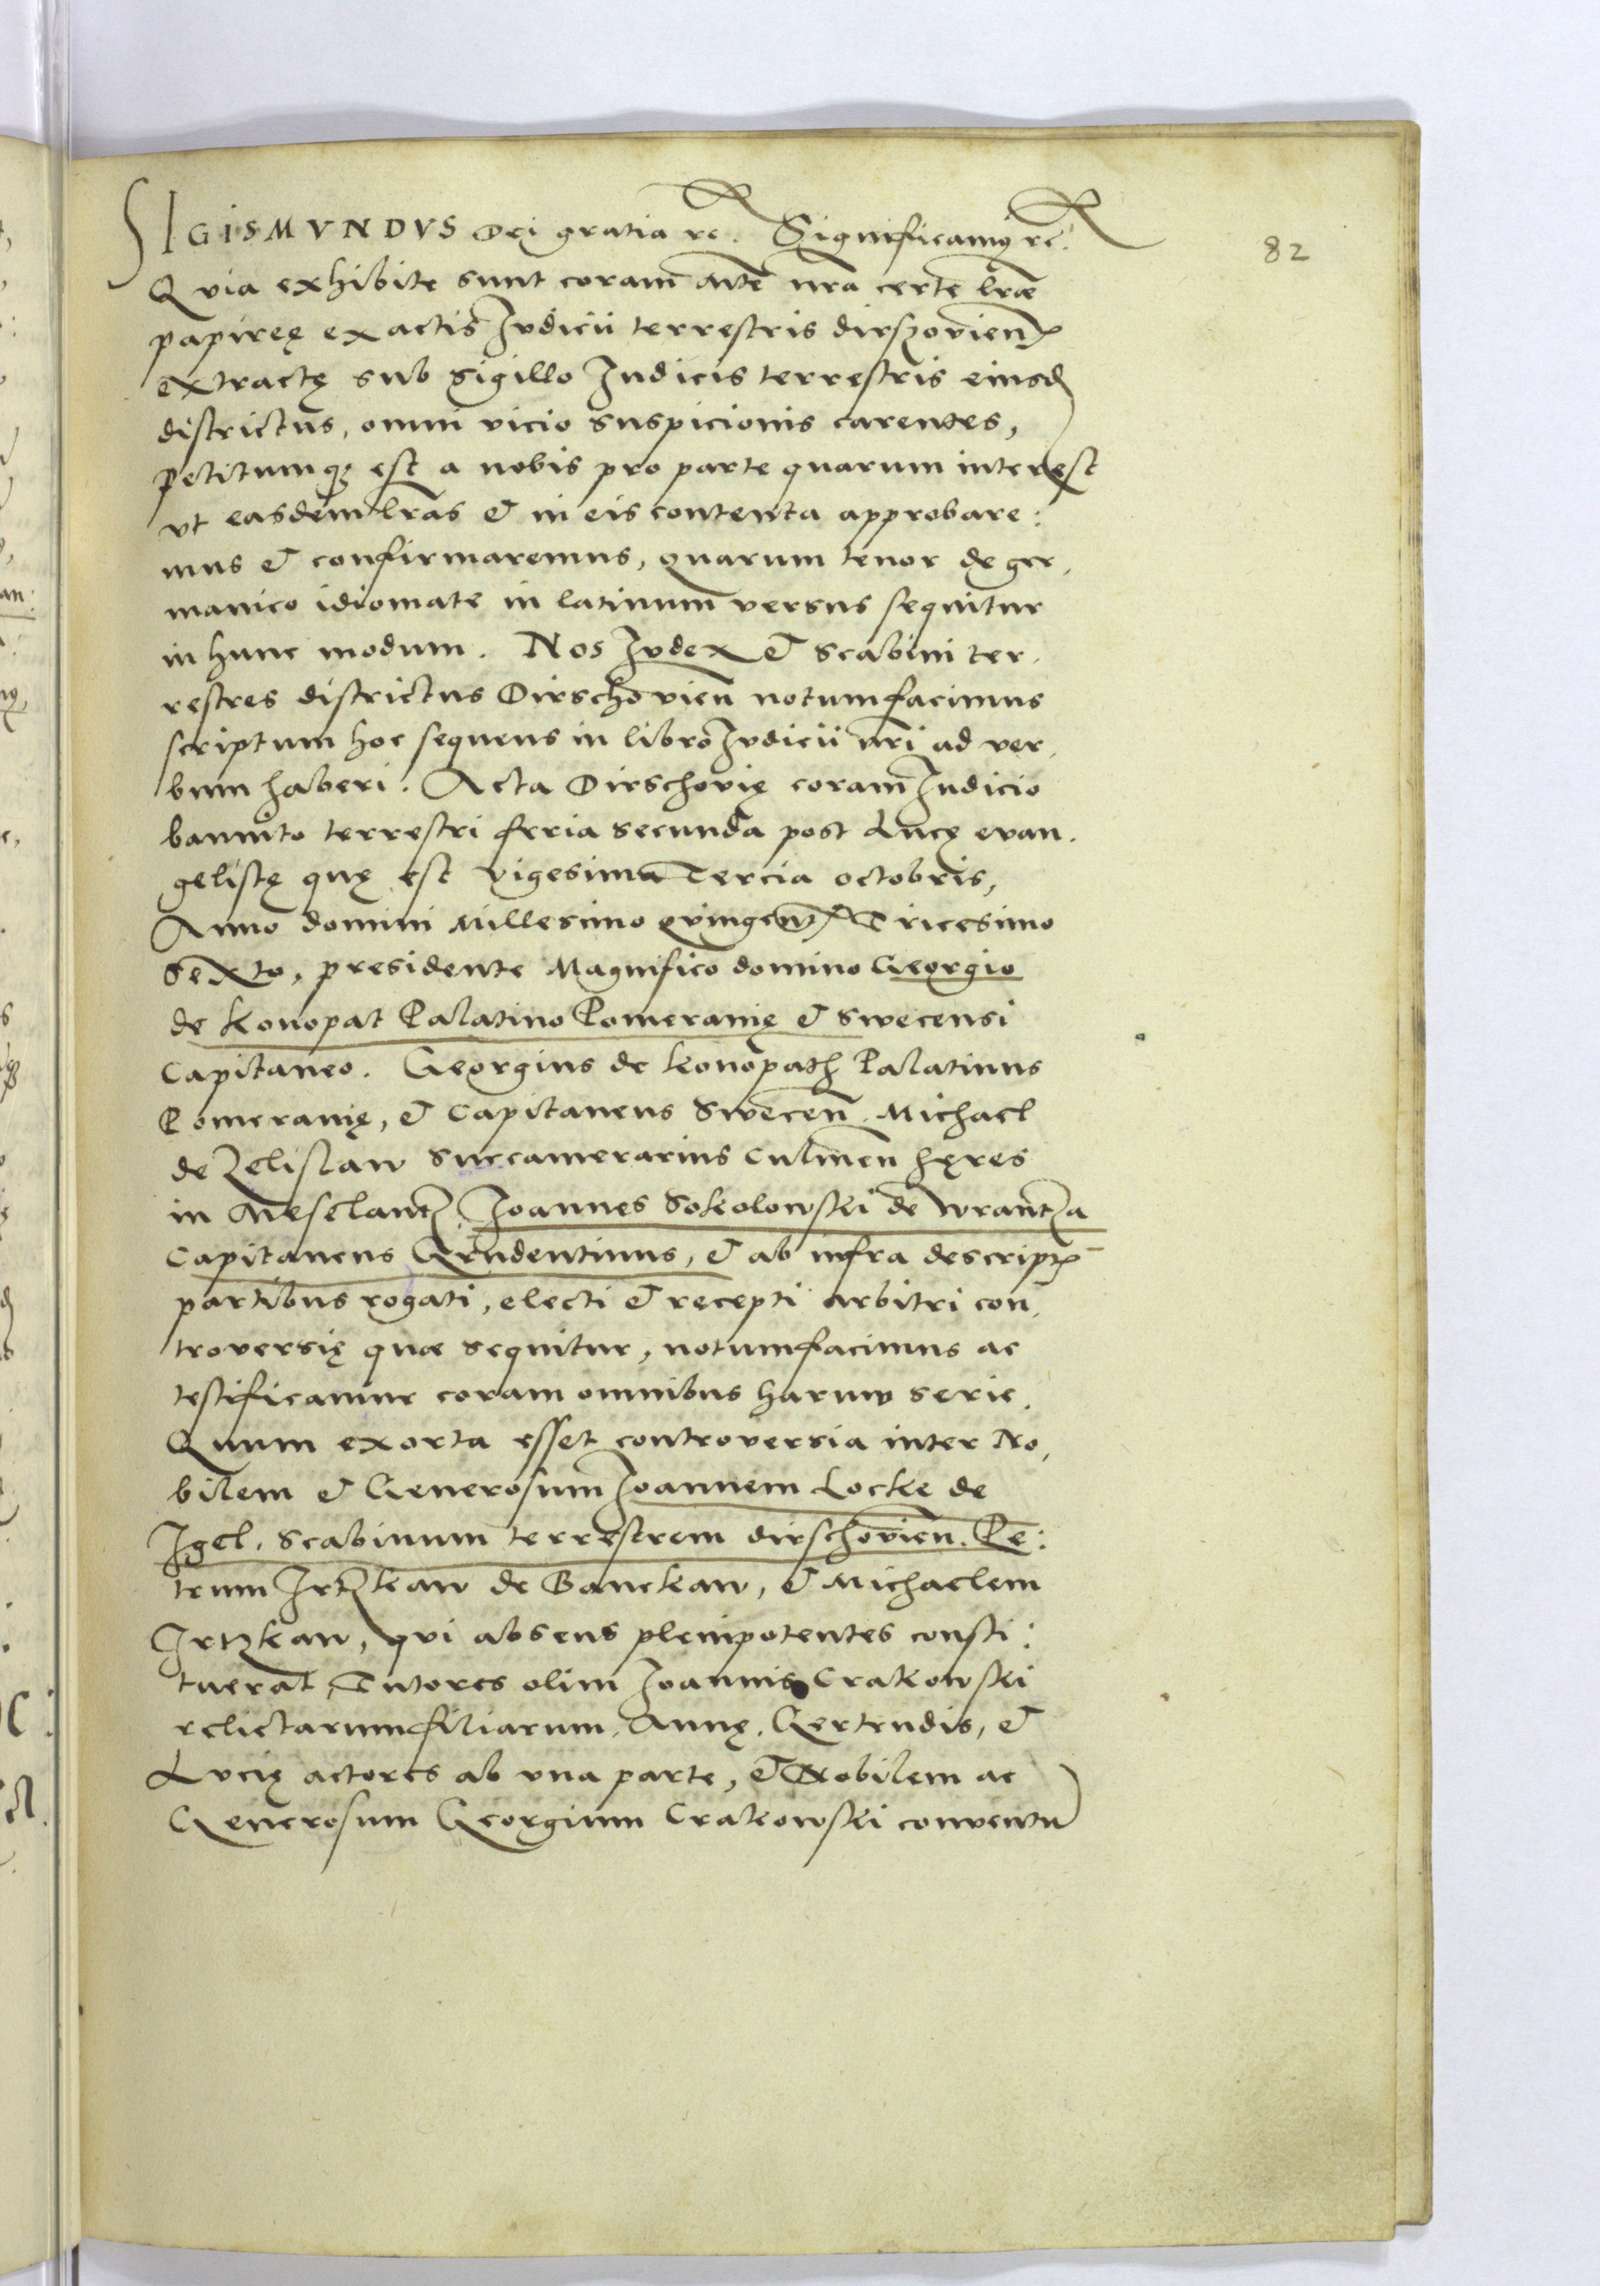 82
SIGISMVNDVS Dei gratia rc. Significamq rc.
Qvia exhibite sunt coram Mte nra certe lræ
papireę ex actis Jvdicii terrestris dirszovien
extractę sub sigillo Judicis terrestris eiusd
districtus, omni vicio suspicionis carentes,
petitumq; est a nobis pro parte quarum interest
vt easdem lras et in eis contenta approbare:
mus et confirmaremus, quarum tenor de ger,
manico idiomate in latinum versus sequitur
in hunc modum. Nos Jvdex et Scabini ter,
restres districtus Dirschovien notumfacimus
scriptum hoc sequens in libro Jvdicii nri ad ver,
bum haberi. Acta Dirschovię coram Judicio
bannito terrestri feria secunda post Lucę evan,
gelistę quę est vigesima Tercia octobris,
Anno domini Millesimo qvingent Tricesimo
Sexto, presidente Magnifico domino Georgio
de Konopat Palatino Pomeranię et Swecensi
Capitaneo. Georgius de Konopath Palatinus
Pomeranię, et Capitaneus Swecen. Michael
de Zelislaw Succamerarius Culmen hęres
in Meselantz, Joannes Sokolowski de Wrantza
Capitaneus Grudentinus, et ab infra descript
partibus rogati, electi et recepti arbitri con,
troversię quæ sequitur, notumfacimus ac
testificamur coram omnibus harum serie,
Quum exorta esset controversia inter No,
bilem et Generosum Joannem Locke de
Jgel, Scabinum terrestrem dirschovien. Pe:
trum Jrtzkaw de Banckaw, et Michaelem
Jrtzkaw, qvi absens plenipotentes consti:
tuerat, Tutores olim Joannis Crakowski
relictarum filiarum, Annę, Gertrudis, et
Lvcię actores ab vna parte, et Nobilem ac
Generosum Georgium Crakowski conventu